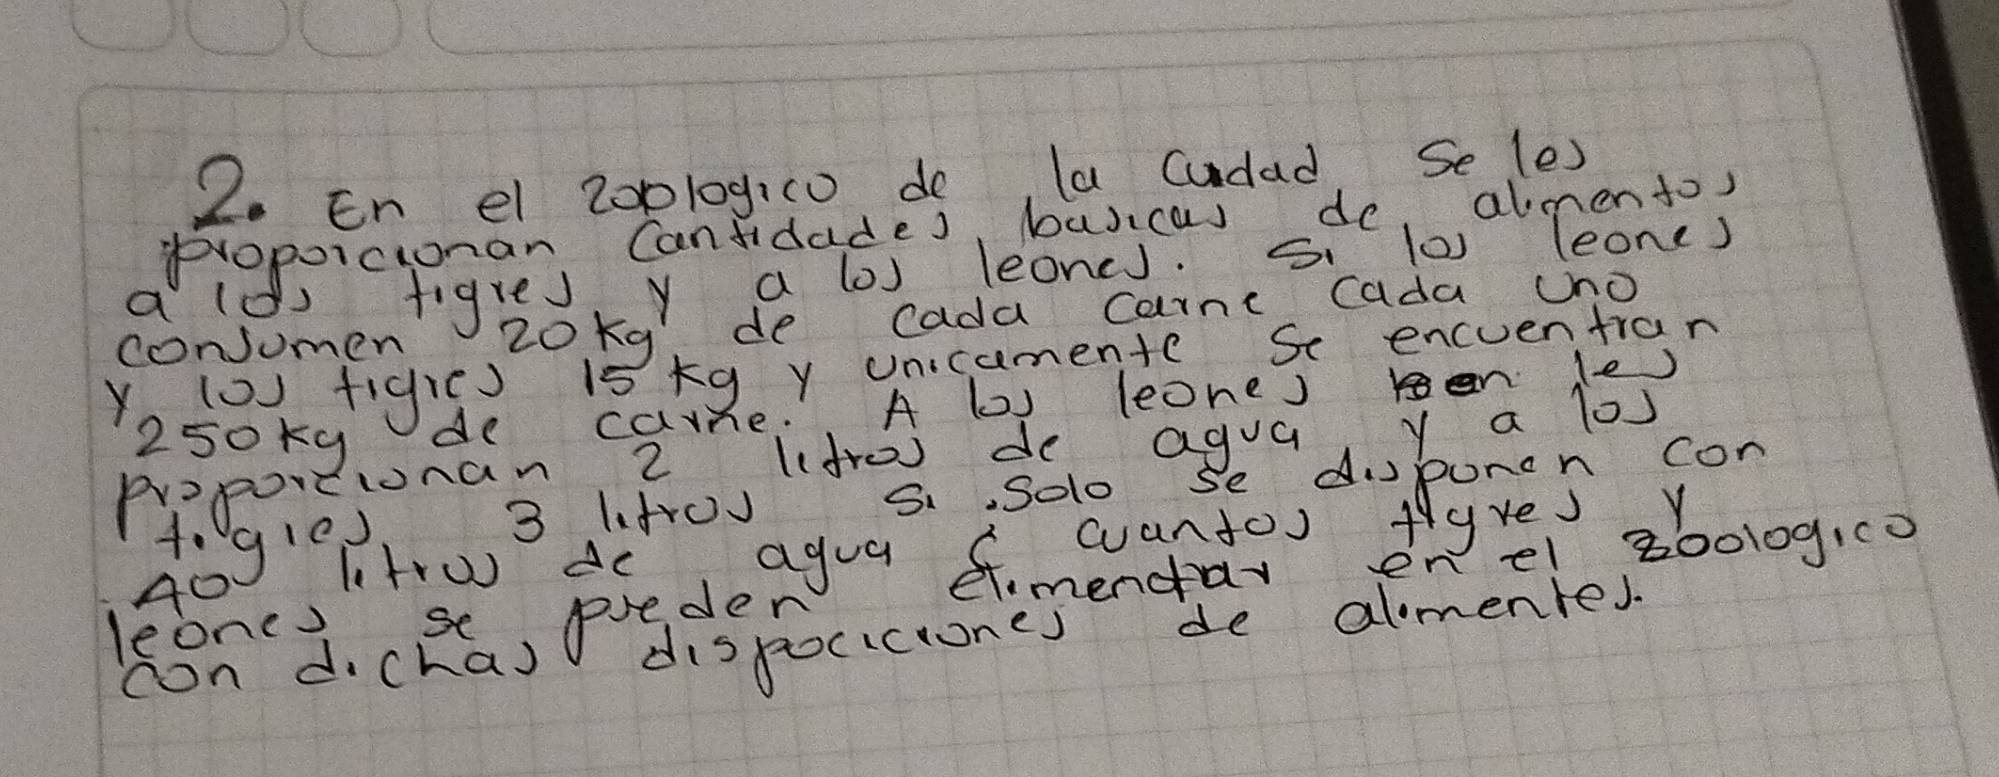 2. En el zoologico de la Cudad, se les
proporcionan Cantidades basicas de alimentos
a los tigres y a los leones. Si los leones
consumen 20 kg de cada carne cada uno
y los tigres 15 kg y unicamente se encuentran
250 kg de carne. A los leones les
proporcionan 2 litros de agua y a los
tigres 3 litros si solo se disponen con
40 litros de agua ¿ cuantos tigres y
leones se pueden alimentar en el zoologico
con dichas dispociciones de alimentes.